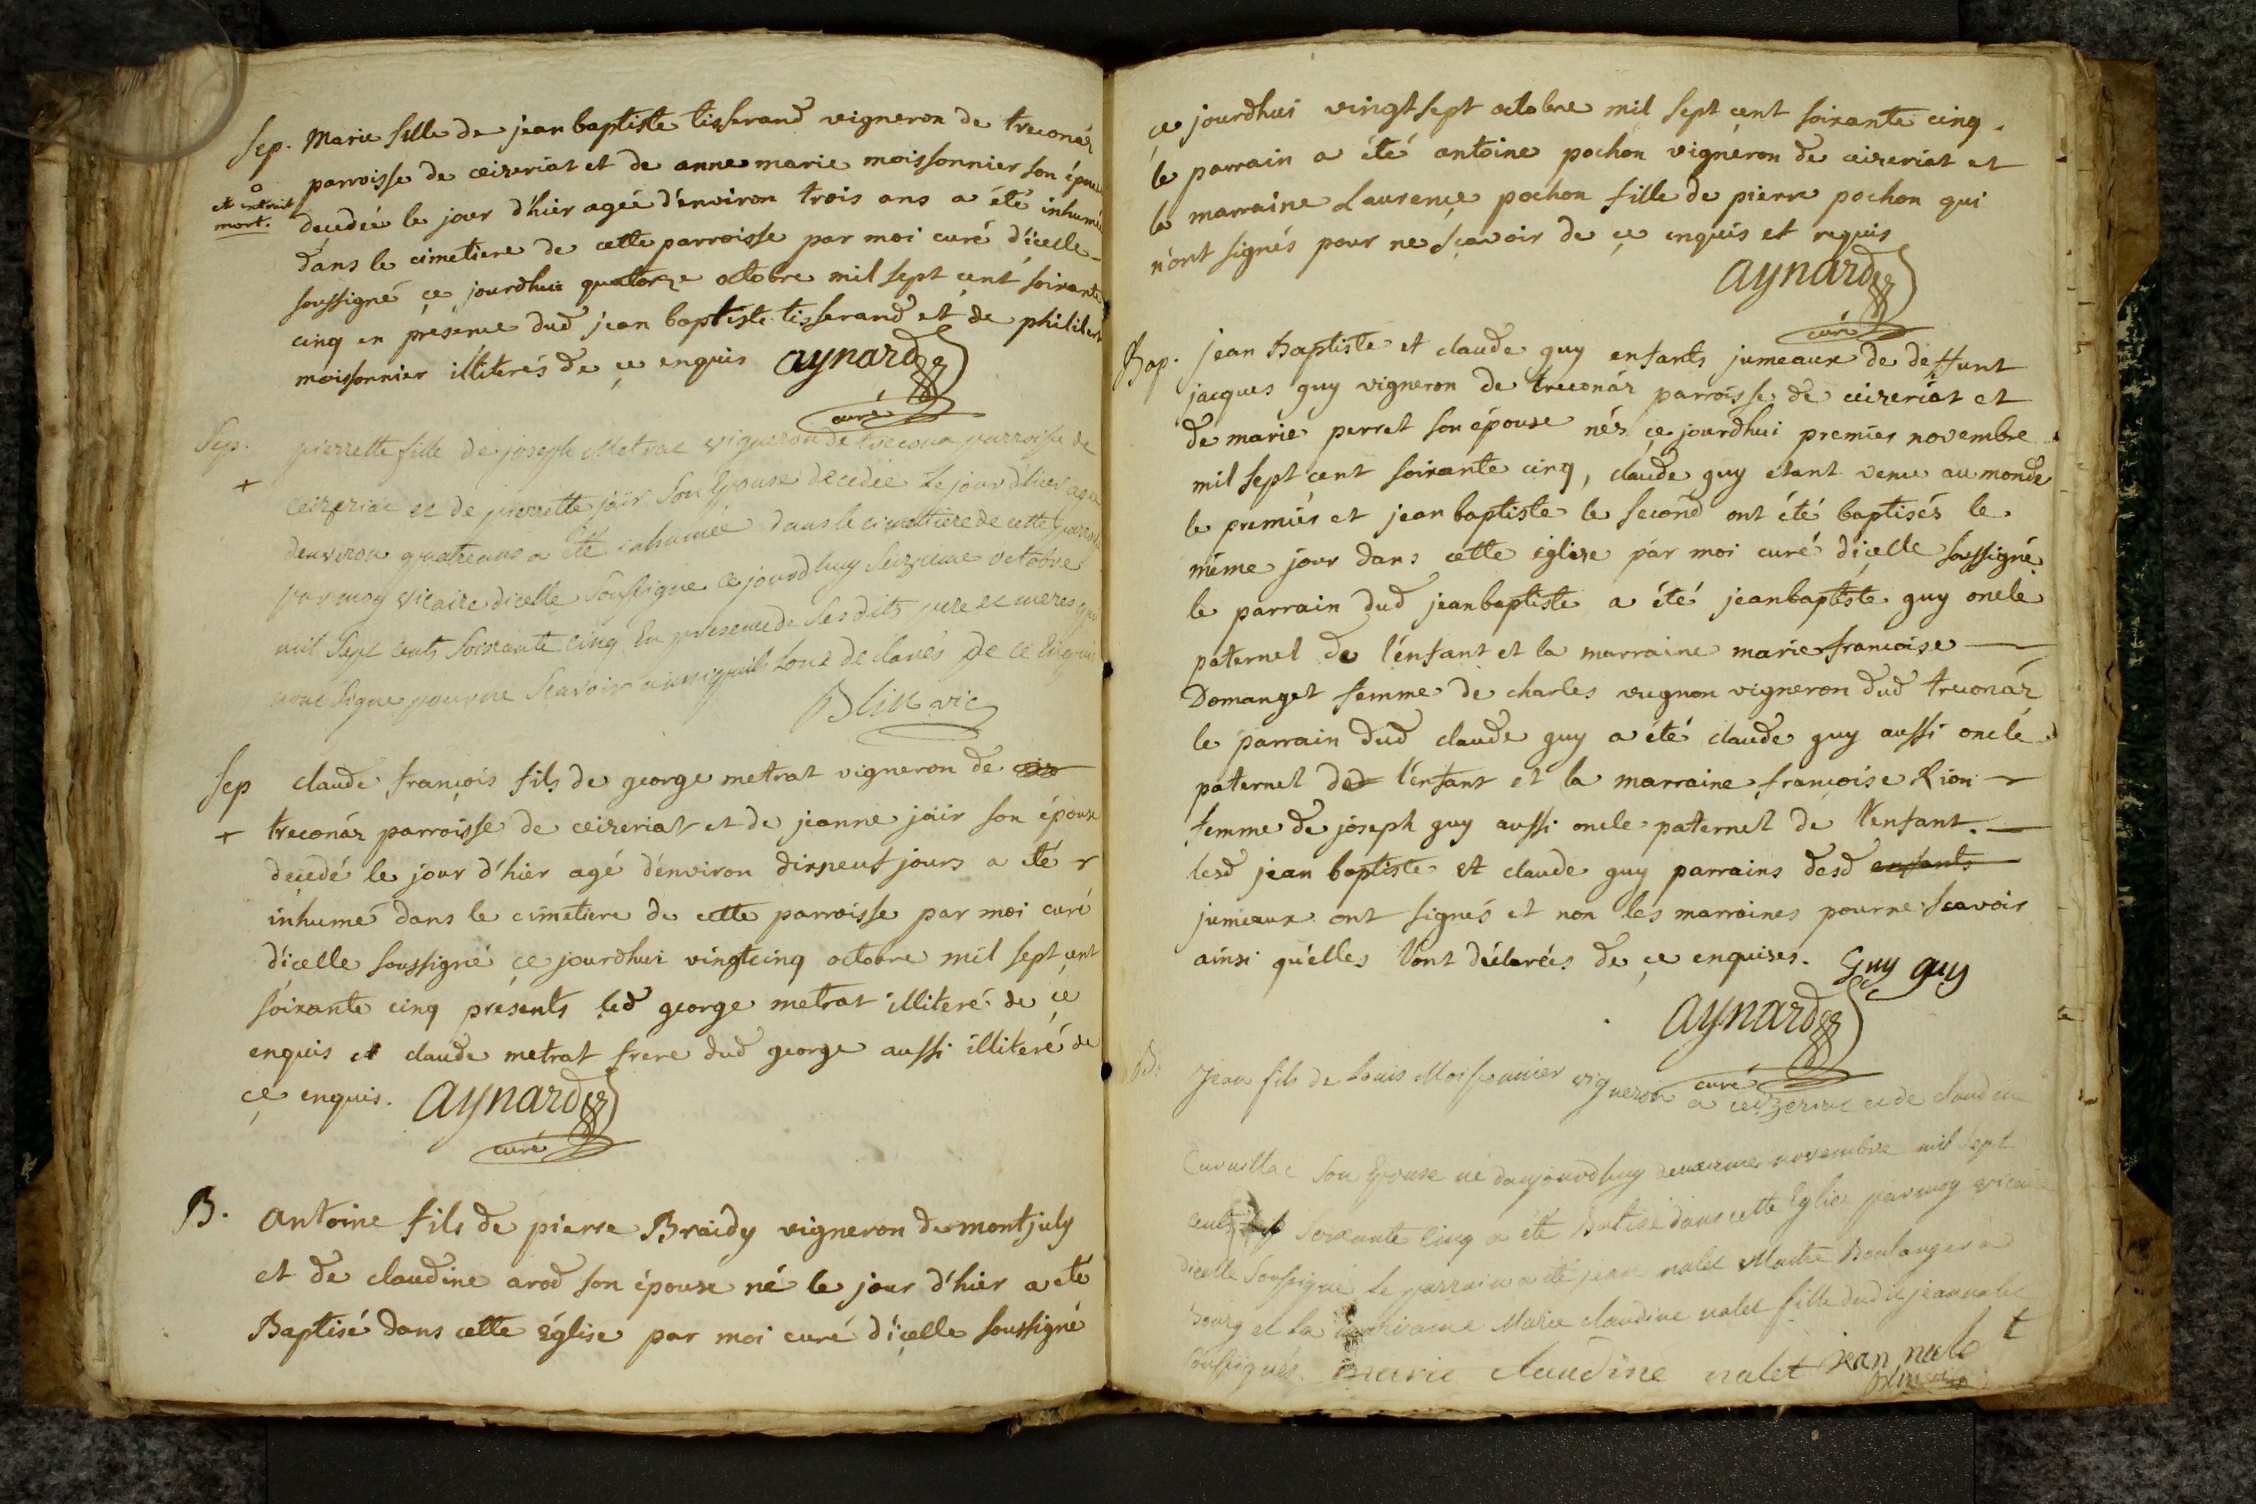 Sep. Marie fille de jean baptiste tisserand vigneron de treconáz
parroisse de ceizeriat et de anne marie moissonnier son épouse
et extrait
mort.
decedée le jour d'hier agée d'environ trois ans a été inhumée
dans le cimetiere de cette parroisse par moi curé d'icelle
soussigné ce jourdhui quatorze octobre mil sept cent soixante
cinq en présence dud jean baptiste tisserand et de philibert
moissonnier illiterés de ce enquis aynard
curé
Sep. pierrette fille de joseph Metrat vigneron de trecona parroisse de
+
ceizeriat et de pierrette jair son Epouse decedée le jour d'hier agée
denviron quatre ans a été inhumée dans le cimettiere de cette parroisse
par moy vicaire dicelle soussigne ce jourdhuy seizieme octobre
mil sept cents soixante cinq En presence de ses dits pere et meres qui
nont signe pour ne scavoir ainsi quils lont declarés de ce Enquis
vic
Sep claude françois fils de george metrat vigneron de
+ treconáz parroisse de ceizeriat et de jeanne jair son épouse
decedé le jour d'hier agé d'environ dixneuf jours a été
inhumé dans le cimetiere de cette parroisse par moi curé
d'icelle soussigné ce jourdhui vingtcinq octobre mil sept cent
soixante cinq présents led george metrat illiteré de ce
enquis et claude metrat frere dud george aussi illiteré de
ce enquis. aynard
curé
B. antoine fils de pierre Braidy vigneron de montjuly
et de claudine arod son épouse né le jour d'hier a été
Baptisé dans cette église par moi curé d'icelle soussigné
ce jourdhui vingtsept octobre mil sept cent soixante cinq.
le parrain a été antoine pochon vigneron de ceizeriat et
la marraine Laurence pochon fille de pierre pochon qui
n'ont signés pour ne sçavoir de ce enquis et requis
aynard
curé
Bap. jean Baptiste et claude guy enfants jumeaux de deffunt
jacques guy vigneron de treconáz parroisse de ceizeriat et
de marie perret son épouse nés ce jourdhui premier novembre
mil sept cent soixante cinq, claude guy etant venu au monde
le premier et jean baptiste le second ont été baptisés le
même jour dans cette église par moi curé d'icelle soussigné
le parrain dud jeanbaptiste a été jeanbaptiste guy oncle
paternel de l'enfant et la marraine marie françoise
Domanget femme de charles vugnon vigneron dud treconáz
le parrain dud claude guy a été claude guy aussi oncle
paternel de l'enfant et la marraine françoise Rion
femme de joseph guy aussi oncle paternel de l'enfant.
lesd jean baptiste et claude guy parrains desd enfants
jumeaux ont signés et non les marraines pour ne scavoir
ainsi qu'elles l'ont déclarées de ce enquises. Guy guy
aynard
curé
B. Jean fils de Louis Moissonnier vigneron a ceizeriat et de claudine
son Epouse né daujourdhuy deuxieme novembre mil sept
cents soixante cinq a été Batisé dans cette Eglise par moy vicaire
dicelle soussigné le parrain a été jean nalet Maitre Boulanger a
bourg et la marraine Marie claudine nalet fille dudit jean nalet
soussignés. marie claudine nalet jean nalet